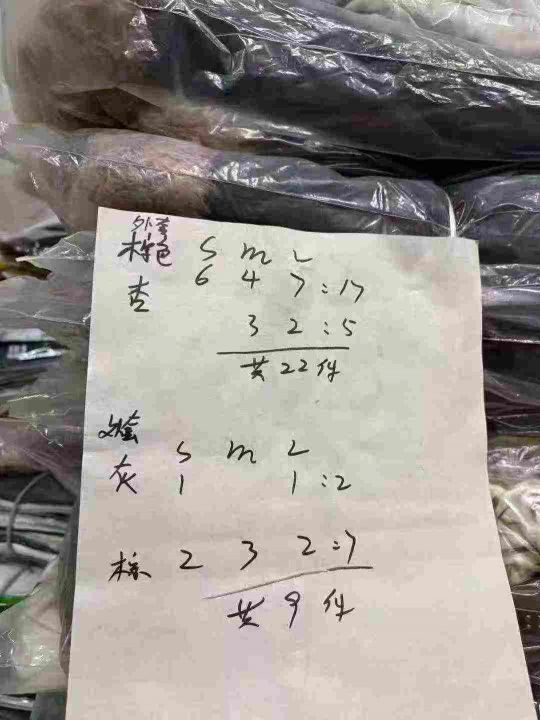 外套
棕色 S m L
6 4 7:17
杏 3 2:5
共22件
外套
S m L
灰 1 1:2
棕 2 3 2:7
共9件